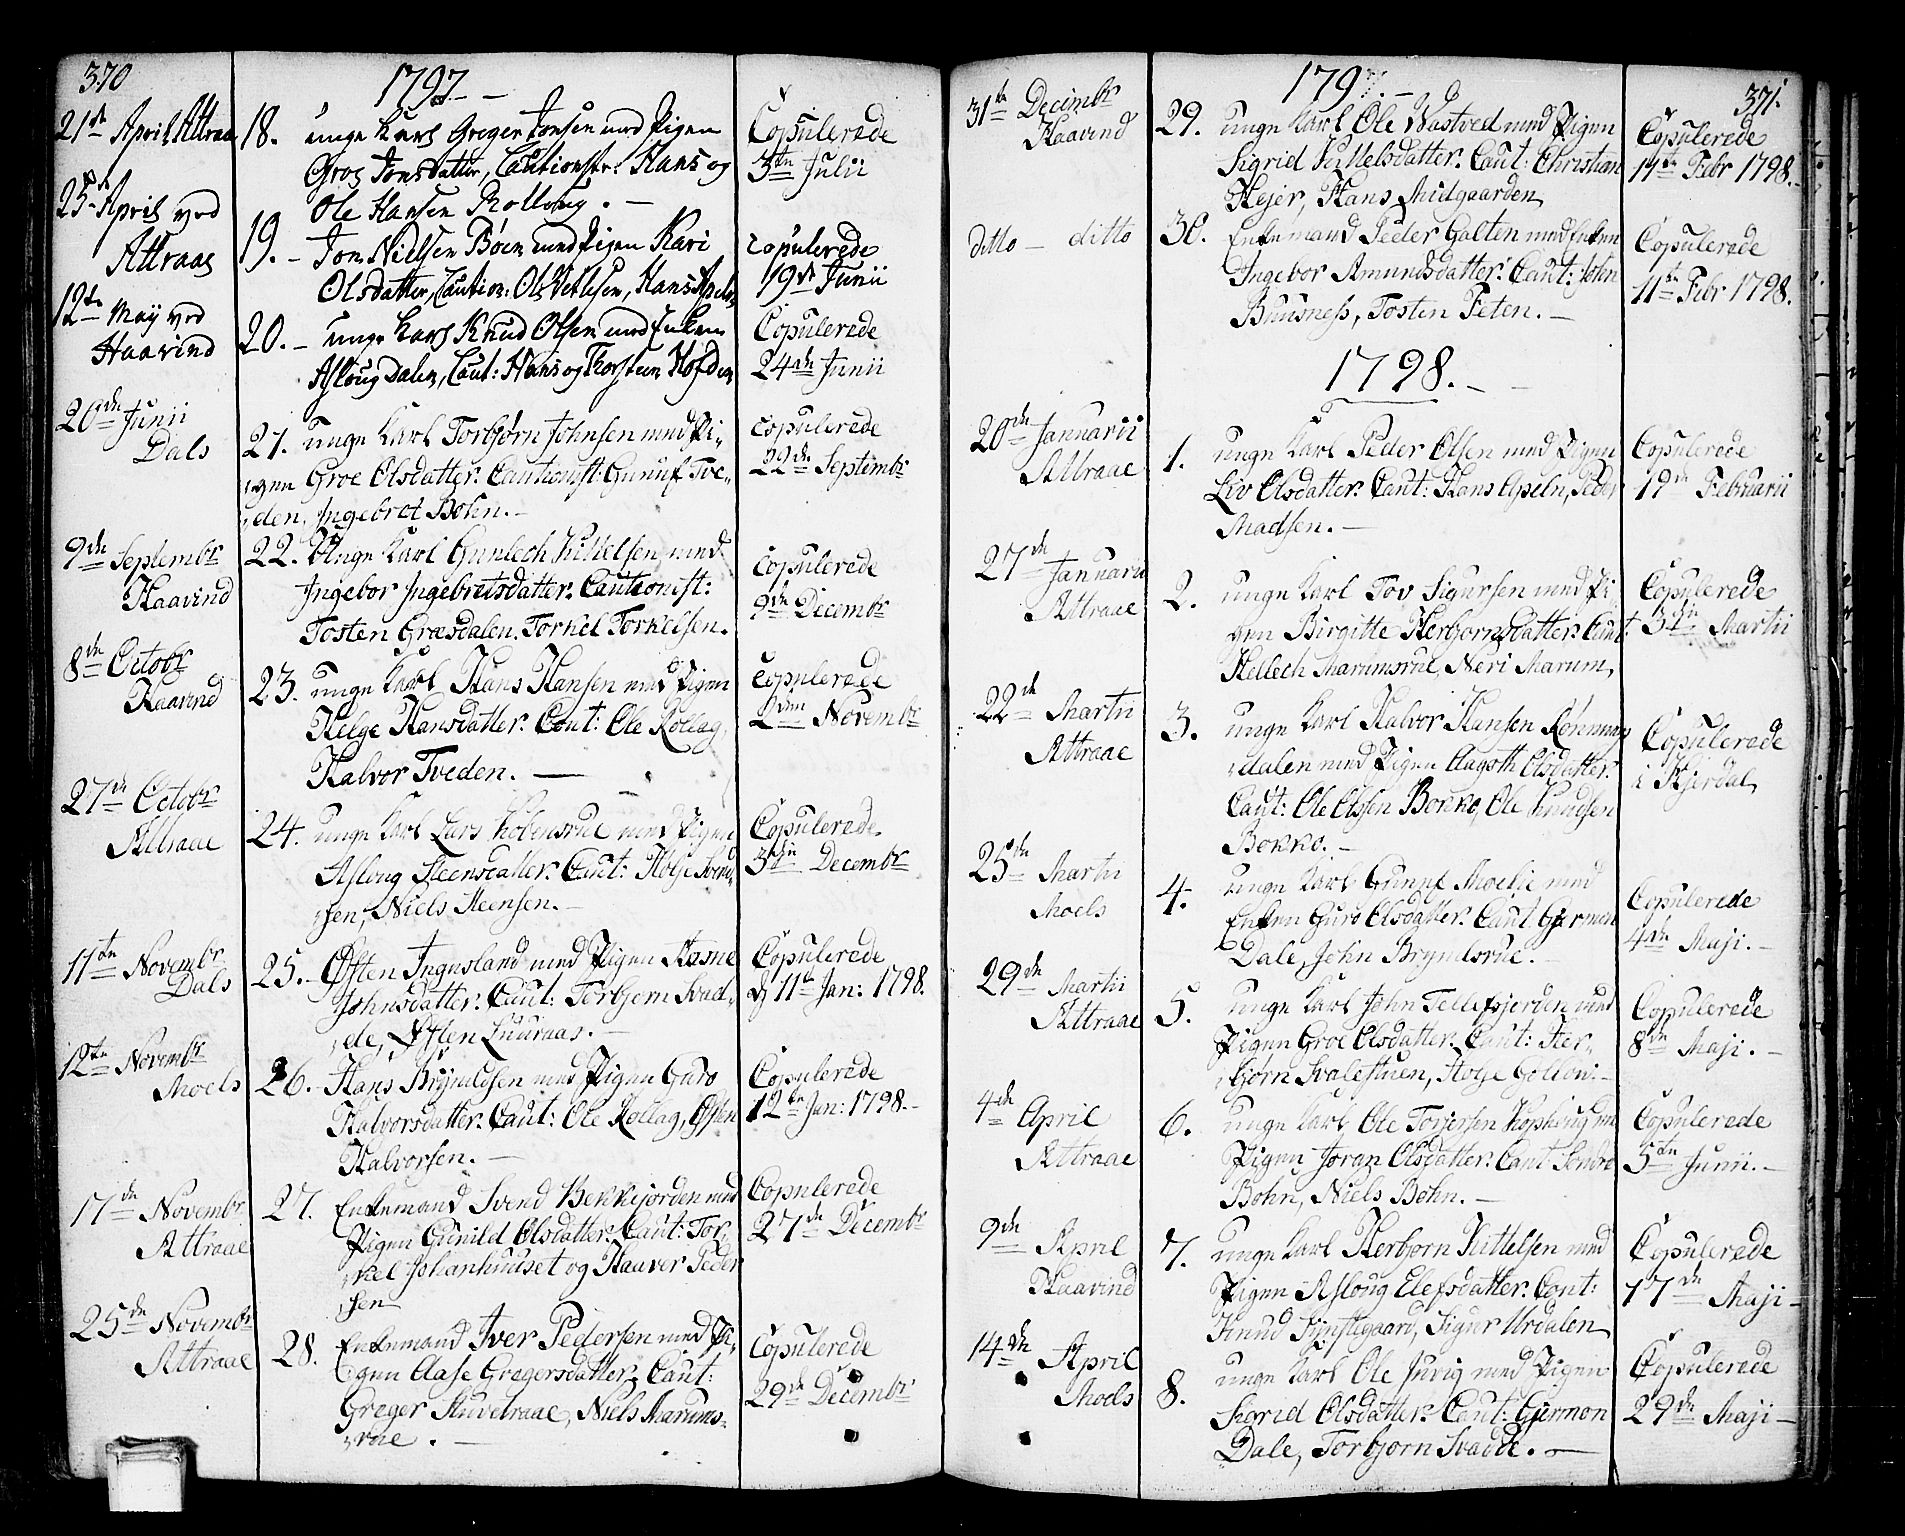 370
1797.
21de April Attraa
18. unge Karl Greger Jonsen med Pigen
Groe Jonsdatter, Cautionstr: Hans og
Ole Hansen Rollong. -
Copulerede
3die Julii
25de April ved
Attraae
19. - Jon Nielsen Böen med Pigen Kari
Olsdatter, Caution: Ole Vetlesen, Hans Apeln
Copulerede
19de Junii
12te May ved
Haavind
20. - unge Karl Knud Olsen med Enken
Asloug Dalen, Caut: Hans og Thorsteen Hofden
Copulerede
24de Junii
20de Junii
Dals
21. unge Karl Torbjørn Johnsen med Pi-
gen Groe Olsdatter. Cautionist: Gunuf Tve-
den, Ingebret Bohn. -
Copulerede
22de Septembr
9de Septembr
Haavind
22. Unge Karl Gunlech Kittelsen med
Ingebor Ingebretsdatter. Cautionist:
Tosten Græsdalen. Torkel Torkelsen.
Copulerede
9de Decembr
8de Octobr
Haavind
23. unge Karl Hans Hansen med Pigen
Helge Hansdatter. Caut: Ole Rollag,
Halvor Tveden. -
Copulerede
2den Novembr
27de Octobr
Attraae
24. unge Karl Lars Kobensrue med Pigen
Asloug Steensdatter. Caut: Holje Svend-
sen, Niels Steensen. -
Copulerede
3die Decembr
11te Novembr
Dals
25. - Østen Ingusland med Pigen Aasne
Johnsdatter. Caut: Torbjørn Svad-
de, Østen Luuraas. -
Copulerede
d 11te Jan: 1798.
12te Novembr
Moels
26. Hans Brynildsen med Pigen Guro
Halvorsdatter. Caut: Ole Rollag, Østen
Halvorsen. -
Copulerede
12te Jan: 1798. -
17de Novembr
Attraae
27. Enkemand Svend Bekkejorden med
Pigen Gunild Olsdatter. Caut: Tor-
kel Johanhuuset og Haaver Peder
sen
Copulerede
27de Decembr
25de Novembr
Attraae
28. Enkemand Iver Pedersen med Pi-
gen Aase Gregersdatter. Caut:
Greger Stuvetraae, Niels Marums-
rue. -
Copulerede
29de Decembr
371.
1797. -
31te Decembr
Haavind
29. unge Karl Ole Wastved med Pigen
Sigrid Kittelsdatter. Caut: Christian
Hejer, Hans Midgaarden
Copulerede
11te Febr 1798. -
ditto - ditto
30. Enkemand Peder Golten med Enken
Ingebor Amundsdatter. Caut: John
Buusness, Tosten Feten. -
Copulerede
11te Febr 1798.
1798. -
20de Januarii
Attraae
1. unge Karl Peder Olsen med Pigen
Liv Olsdatter. Caut: Hans Apeln, Peder
Madsen. -
Copulerede
19de Februarii
27de Januarii
Attraae
2. unge Karl Tov Sigursen med Pi
gen Birgitte Herbjornsdatter. Caut:
Hellech Marumsrue, Neri Marum,
Copulerede
3die Martii
22de Martii
Attraae
3. unge Karl Halvor Hansen Rønnings
dalen med Pigen Aagoth Olsdatter.
Caut: Ole Olsen Bokko, Ole Knudsen
Bokko. -
Copulerede
i Hjerdal,
25de Martii
Moels
4. unge Karl Gunuf Moelie med
Enken Guro Olsdatter. Caut Germon
Dale, John Brynlsrue. -
Copulerede
4de Maji. -
29de Martii
Attraae
5. unge Karl John Tellefsjerden med
Pigen Groe Olsdatter. Caut: Her-
bjørn Svalestuen, Holje Golien. -
Copulerede
8de Maji. -
4de April
Attraae
6. unge Karl Ole Torjersen Kopsking med
Pigen Joran Olsdatter. Caut Sondre
Bohn, Niels Bohn. -
Copulerede
5te Junii. -
9de April
Haavind
7. unge Karl Herbjorn Kittelsen med
Pigen Asloug Elefsdatter. Caut:
Knud Synstegaard, Sigur Urdalen
Copulerede
17de Maji -
14de April
Moels
8. unge Karl Ole Juvig med Pigen
Sigrid Olsdatter. Caut: Germon
Dale, Torbjorn Svadde. -
Copulerede
29de Maji -